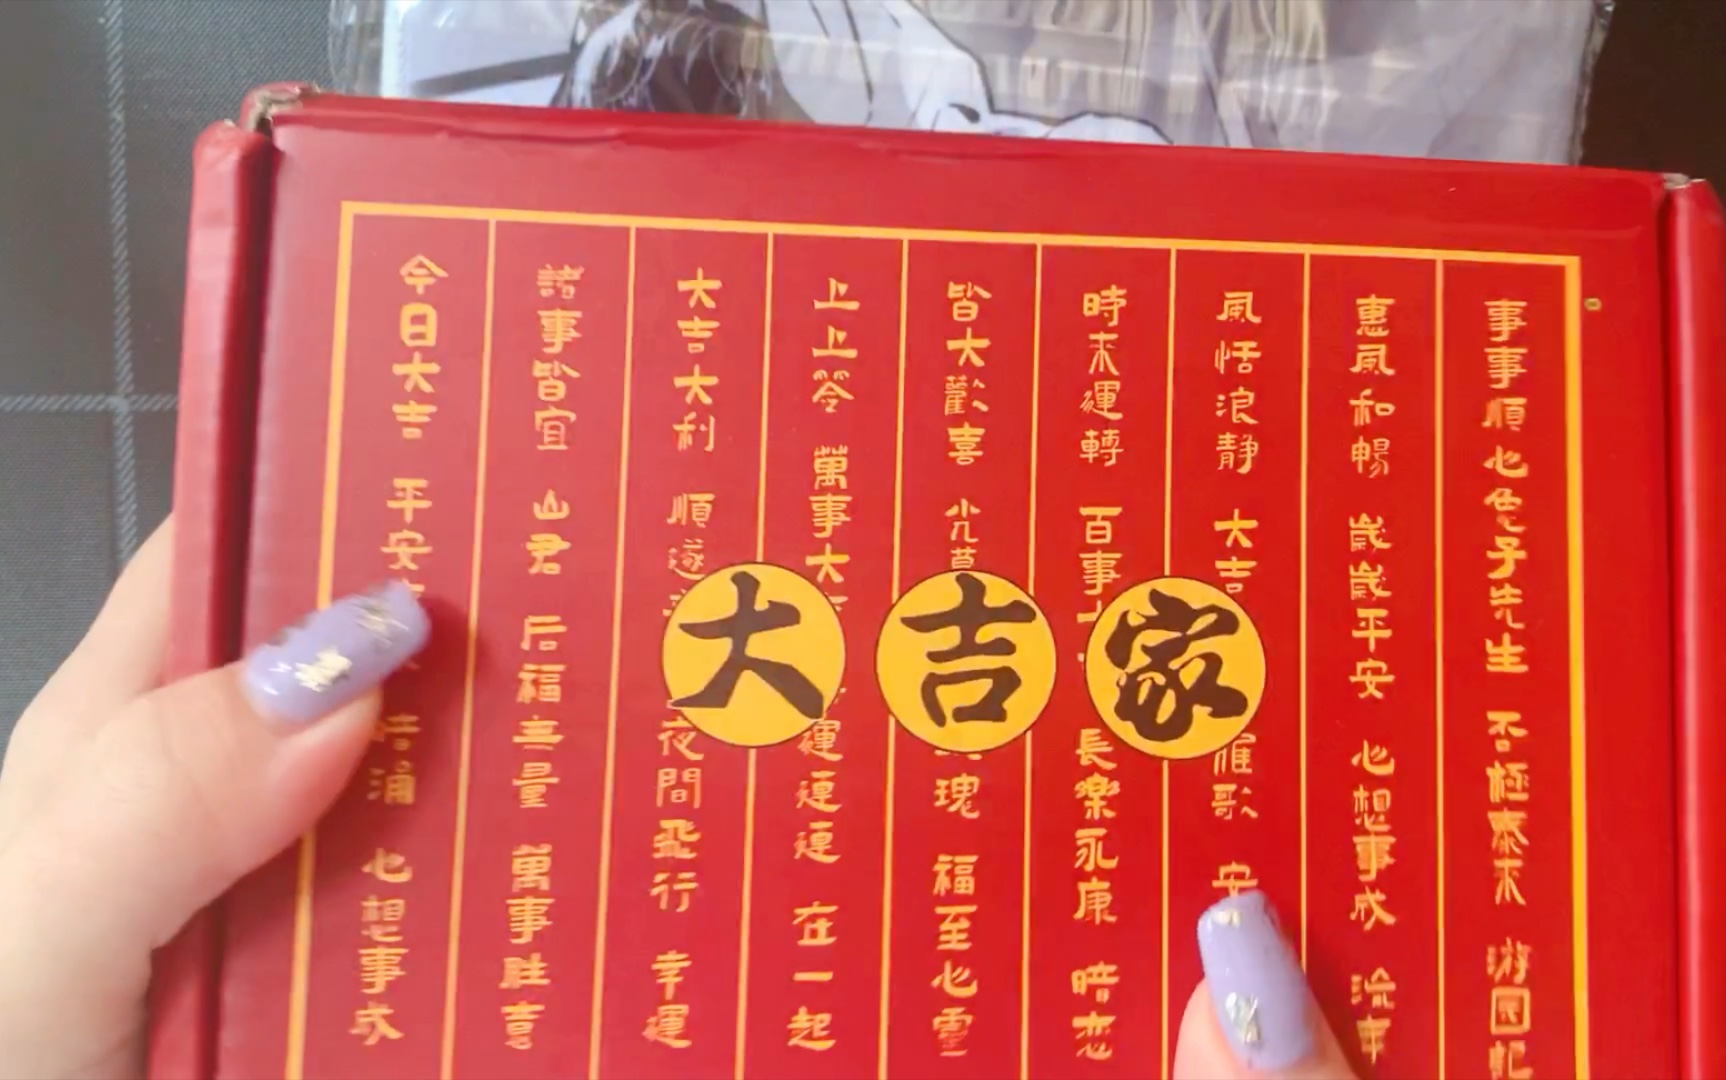 事事順心 兔子先生 否極泰来 游園記
惠風和暢 歲歲平安 心想事成 流年
風恬浪静 大吉 雁歌 安
時来運轉 百事 長樂永康 暗恋
皆大歡喜 瑰 福至心靈
上上签 萬事大 運連連 在一起
大吉大利 順遂 夜間飛行 幸運
諸事皆宜 山君 后福無量 萬事胜意
今日大吉 平安 涌 心想事成
大吉家